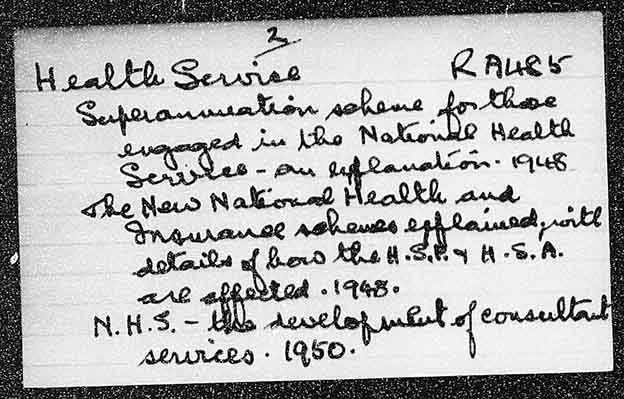 2
Health Service RA485
Superannuation scheme for those
engaged in the National Health
Service - an explanation. 1948
The New National Health and
Insurance schemes explained, with
details of how the H.S.P. & H.S.A.
are affected. 1948.
N.H.S. - the development of consultant
services. 1950.